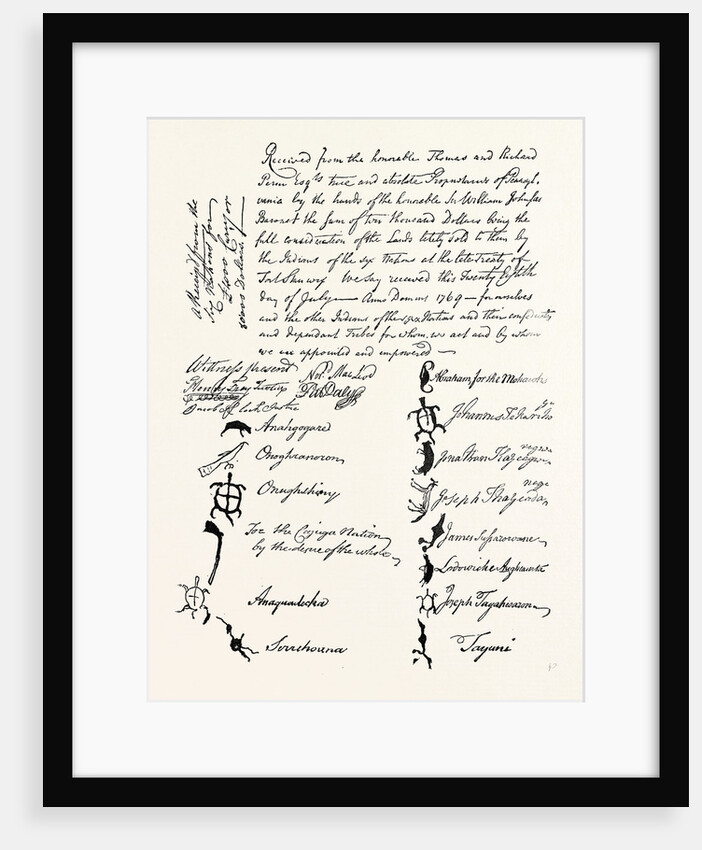 Received from the honorable Thomas and Richard
Penn Esqrs true and absolute Proprietaries of Pensyl-
vania by the hands of the honorable Sir William Johnson
Baronet the sum of ten thousand Dollars being the
full consideration of the Lands lately sold to them by
the Indians of the six Nations at the late treaty of
Fort Stanwix We say received this Twenty Eighth
day of July — Anno Domini 1769 — for ourselves
and the other Indians of the six Nations and their confederates
and dependant Tribes for whom we act and by whom
we are appointed and empowered —
a Receipt from the
Six Nations for
10000 Dollars.
Witness present
Norn. MacLeod
Abraham for the Mohawks
Johannes
Anahgogare
Jonathan
Onoghranoron
Joseph
Onughshiny
For the Cajuga Nation
by the desire of the whole
James
Anaquadecka
Joseph Tagahwaron
Serrehoana
Tayuni